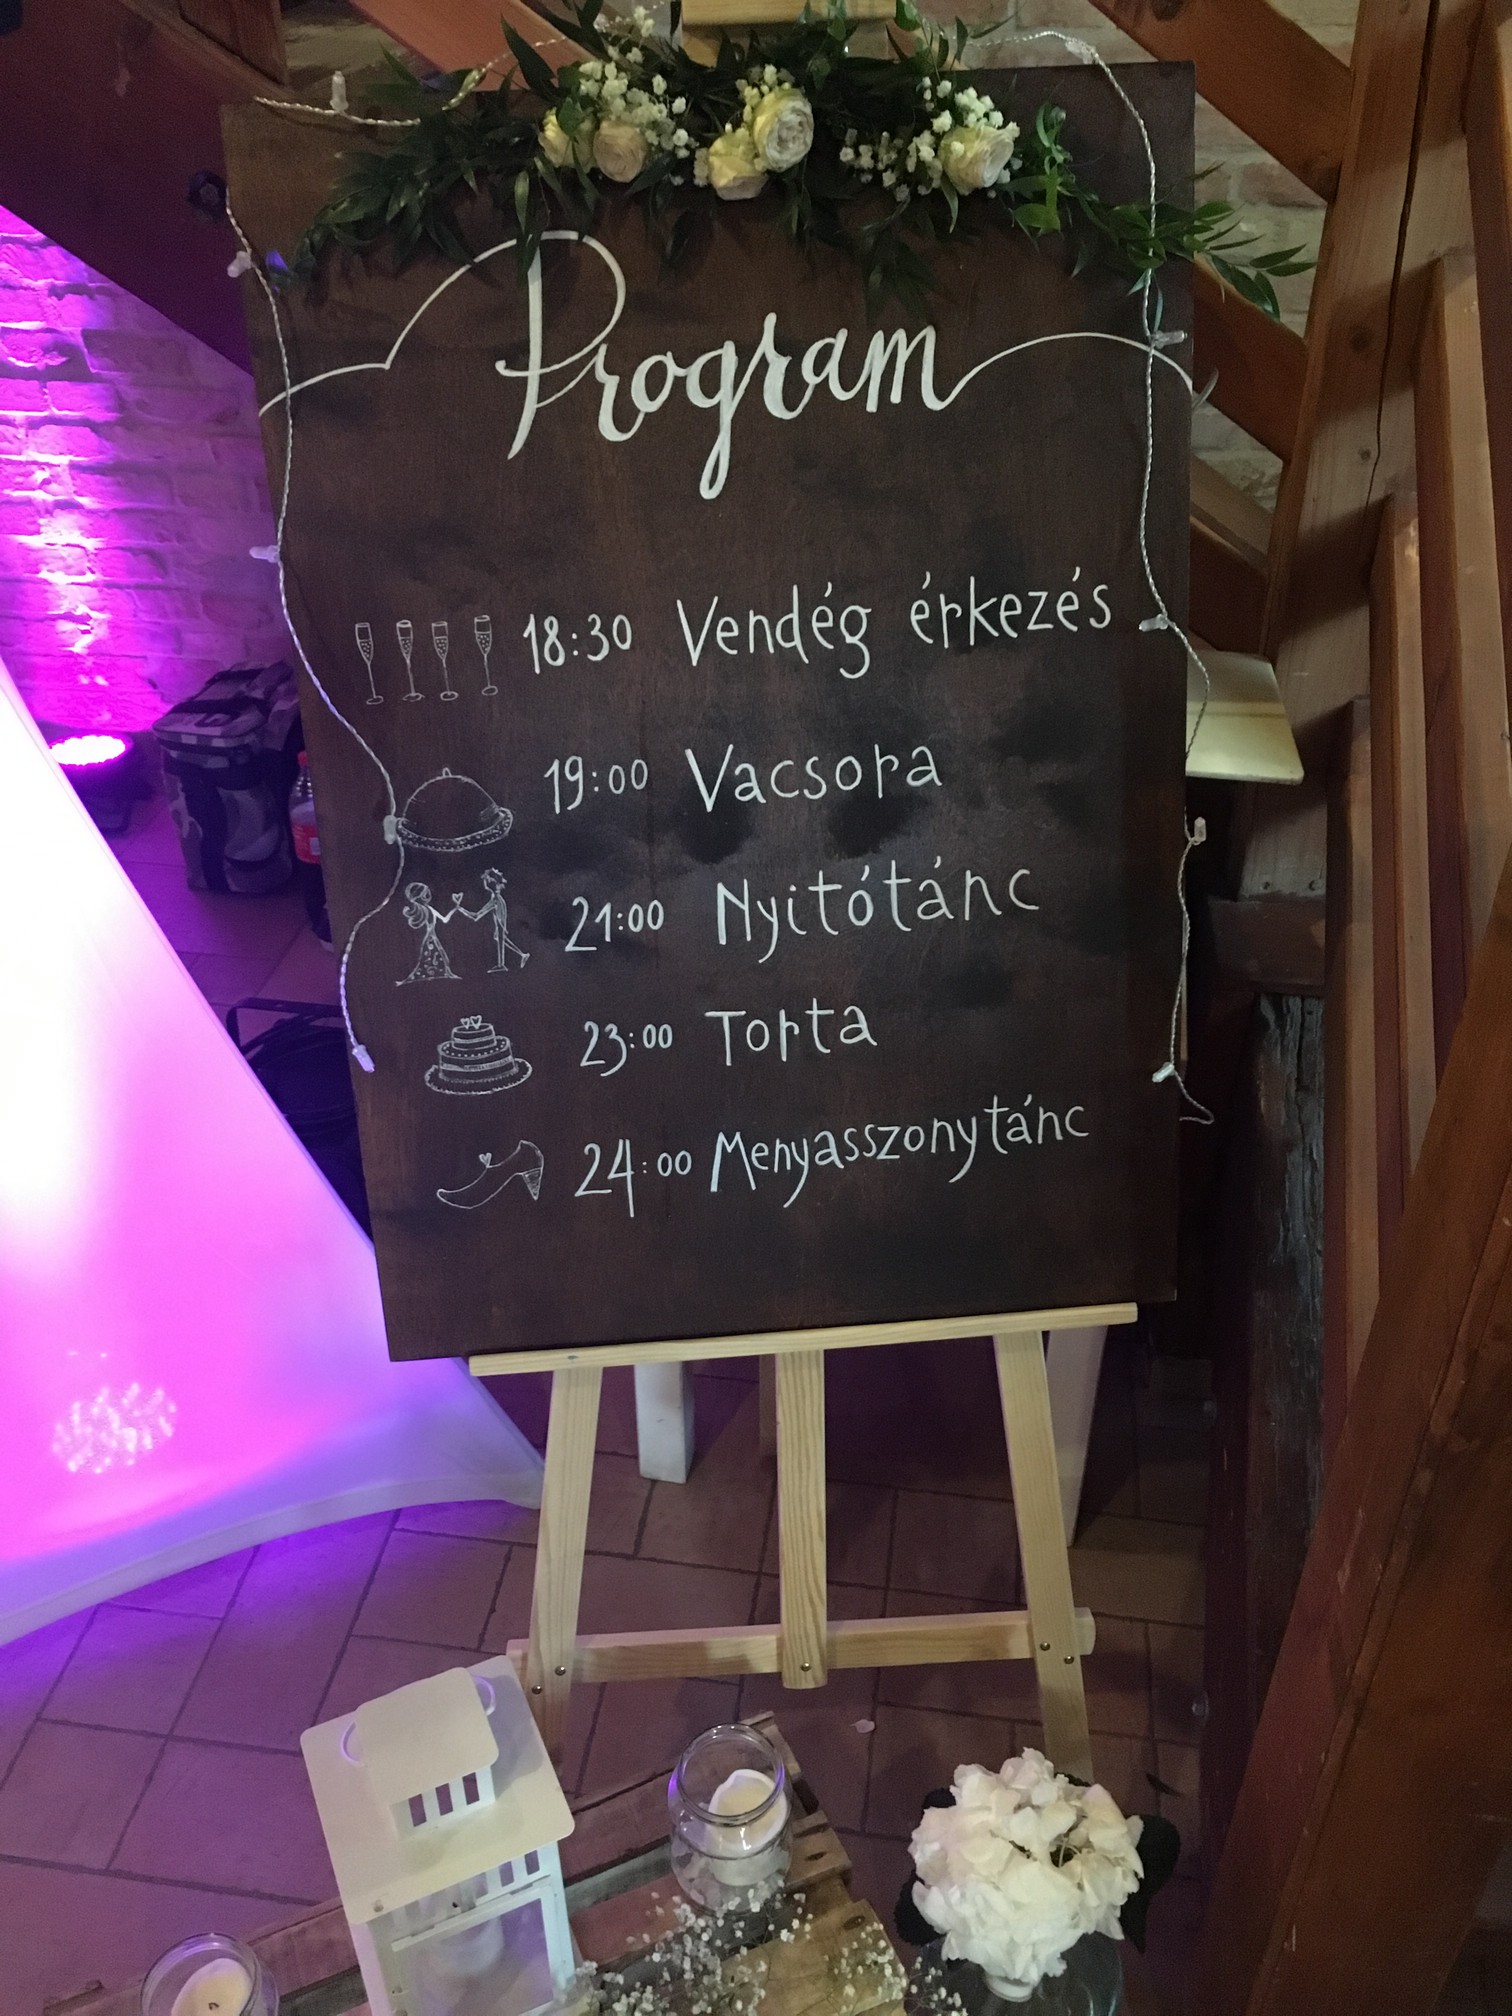 Program
18:30 Vendég érkezés
19:00 Vacsora
21:00 Nyitótánc
23:00 Torta
24:00 Menyasszonytánc